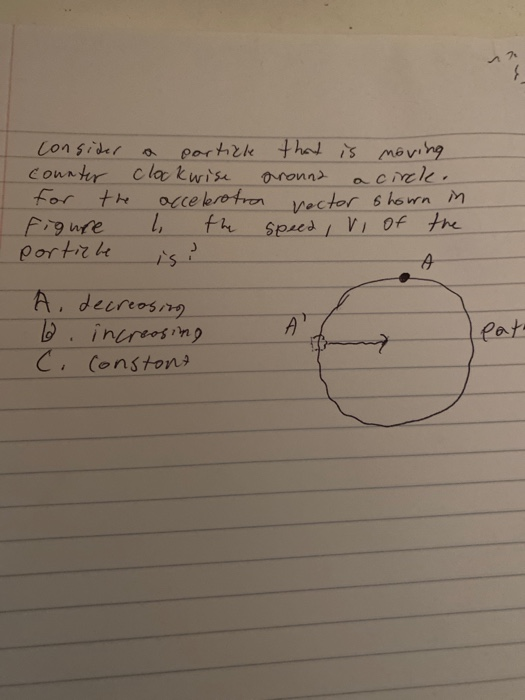 Consider a particle that is moving
counter clockwise around a circle.
For the acceleration vector shown in
Figure 1, the speed, V, of the
particle is?
A. decreasing
b. increasing
C. Constant
A
A'
pat